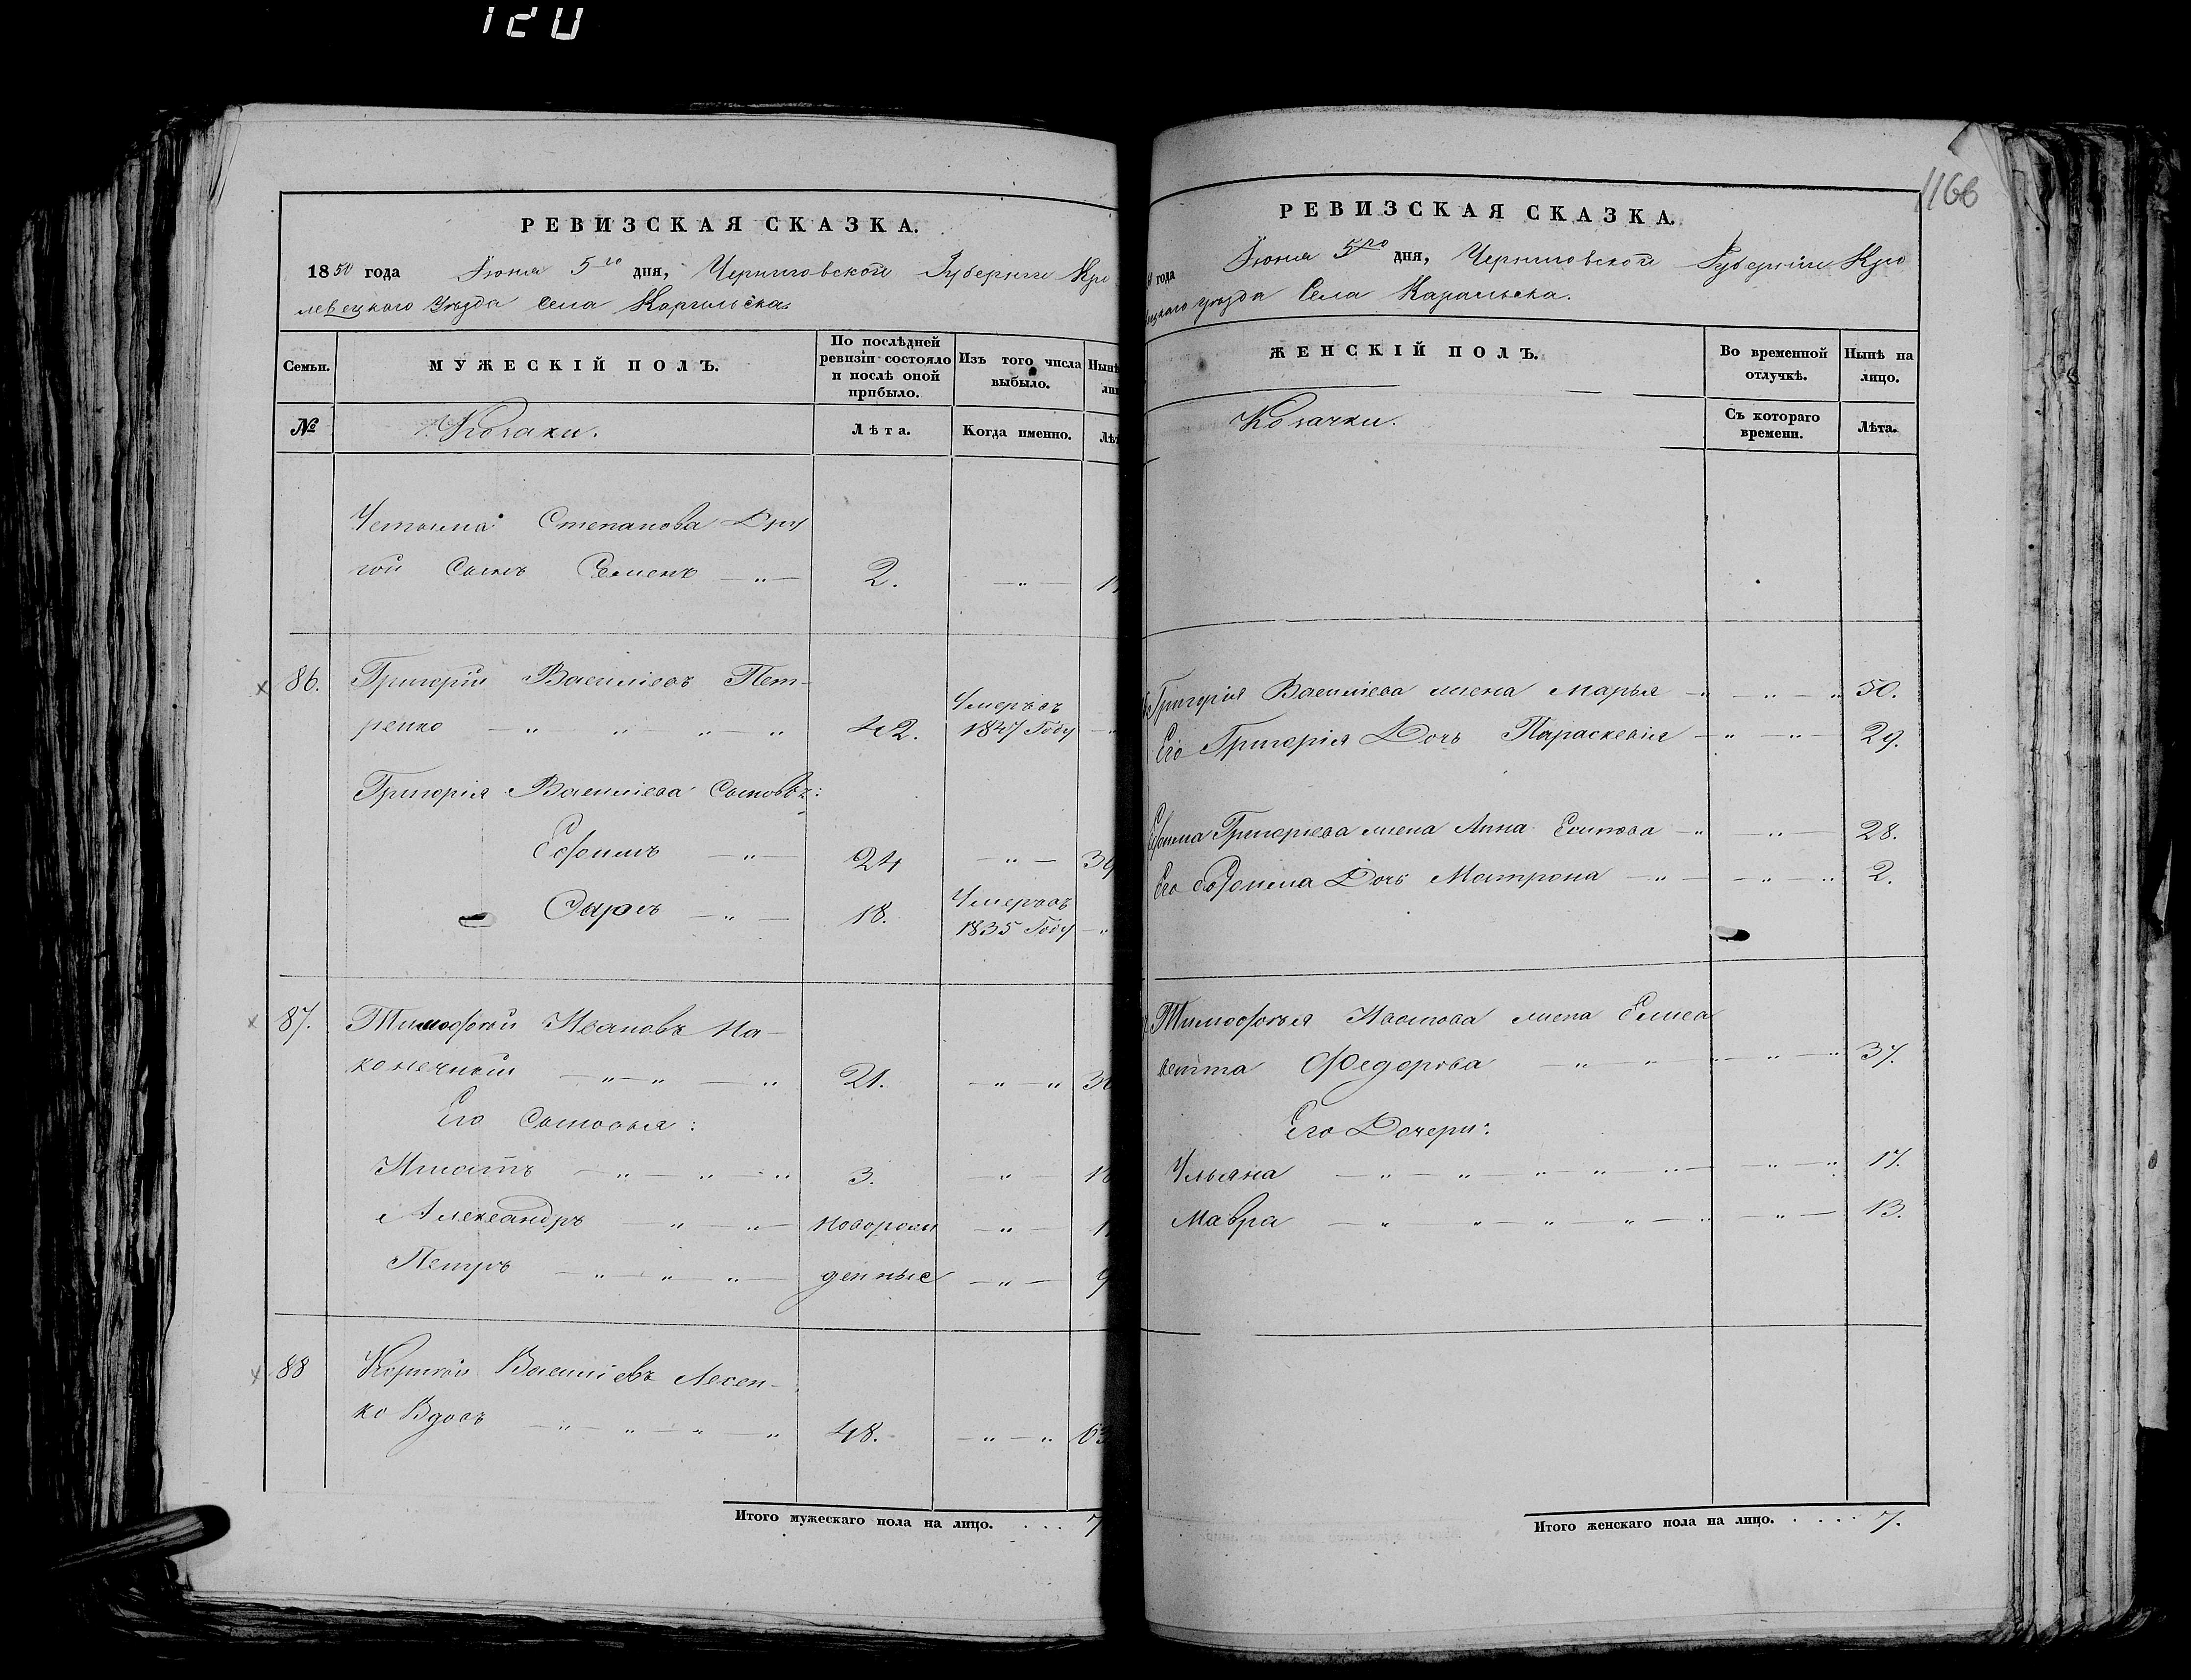 120
РЕВИЗСКАЯ СКАЗКА.
1850 года Іюня 5го дня, Черниговской Губерніи Кро
левецкаго Уѣзда Села Карыльска.
Семьи.
МУЖЕСКІЙ ПОЛЪ.
По послѣдней
ревизіи состояло
и послѣ оной
прибыло.
Изъ того числа
выбыло.
Нынѣ
№
Козаки.
Лѣта.
Когда именно.
Степанова Дру
гой Сынъ Семенъ 2.
86. Григорій Васильевъ Пет-
ренко 42. Умеръ въ 1847 Году
Григорія Васильева Сыновья:
Ефимъ 24
18. Умеръ въ 1835 Году
87. Тимофѣй Ивановъ На-
конечный 21.
Его Сыновья:
Игнатъ 3.
Александръ новорож
Петръ денные 9
88 Василіевъ Лесен-
ко Вдовъ 48. 63
Итого мужескаго пола на лицо. . . . 7
1166
РЕВИЗСКАЯ СКАЗКА.
года Іюня 5го дня, Черниговской Губерніи Кро
уѣзда Села Карыльска.
ЖЕНСКІЙ ПОЛЪ.
Во временной
отлучкѣ.
Нынѣ на
лицо.
Козачки.
Съ котораго
времени.
Лѣта.
Григорія Василіева жена Марья 50.
Его Григорія Дочь Параскевія 29.
Ефима Григорьева жена Анна 28.
Его Ефима Дочь Матрона 2.
Тимофѣя Иванова жена Елиса
ветта Федорова 37.
Его Дочери:
Ульяна 17.
Мавра 13.
Итого женскаго пола на лицо. . . . . 7.